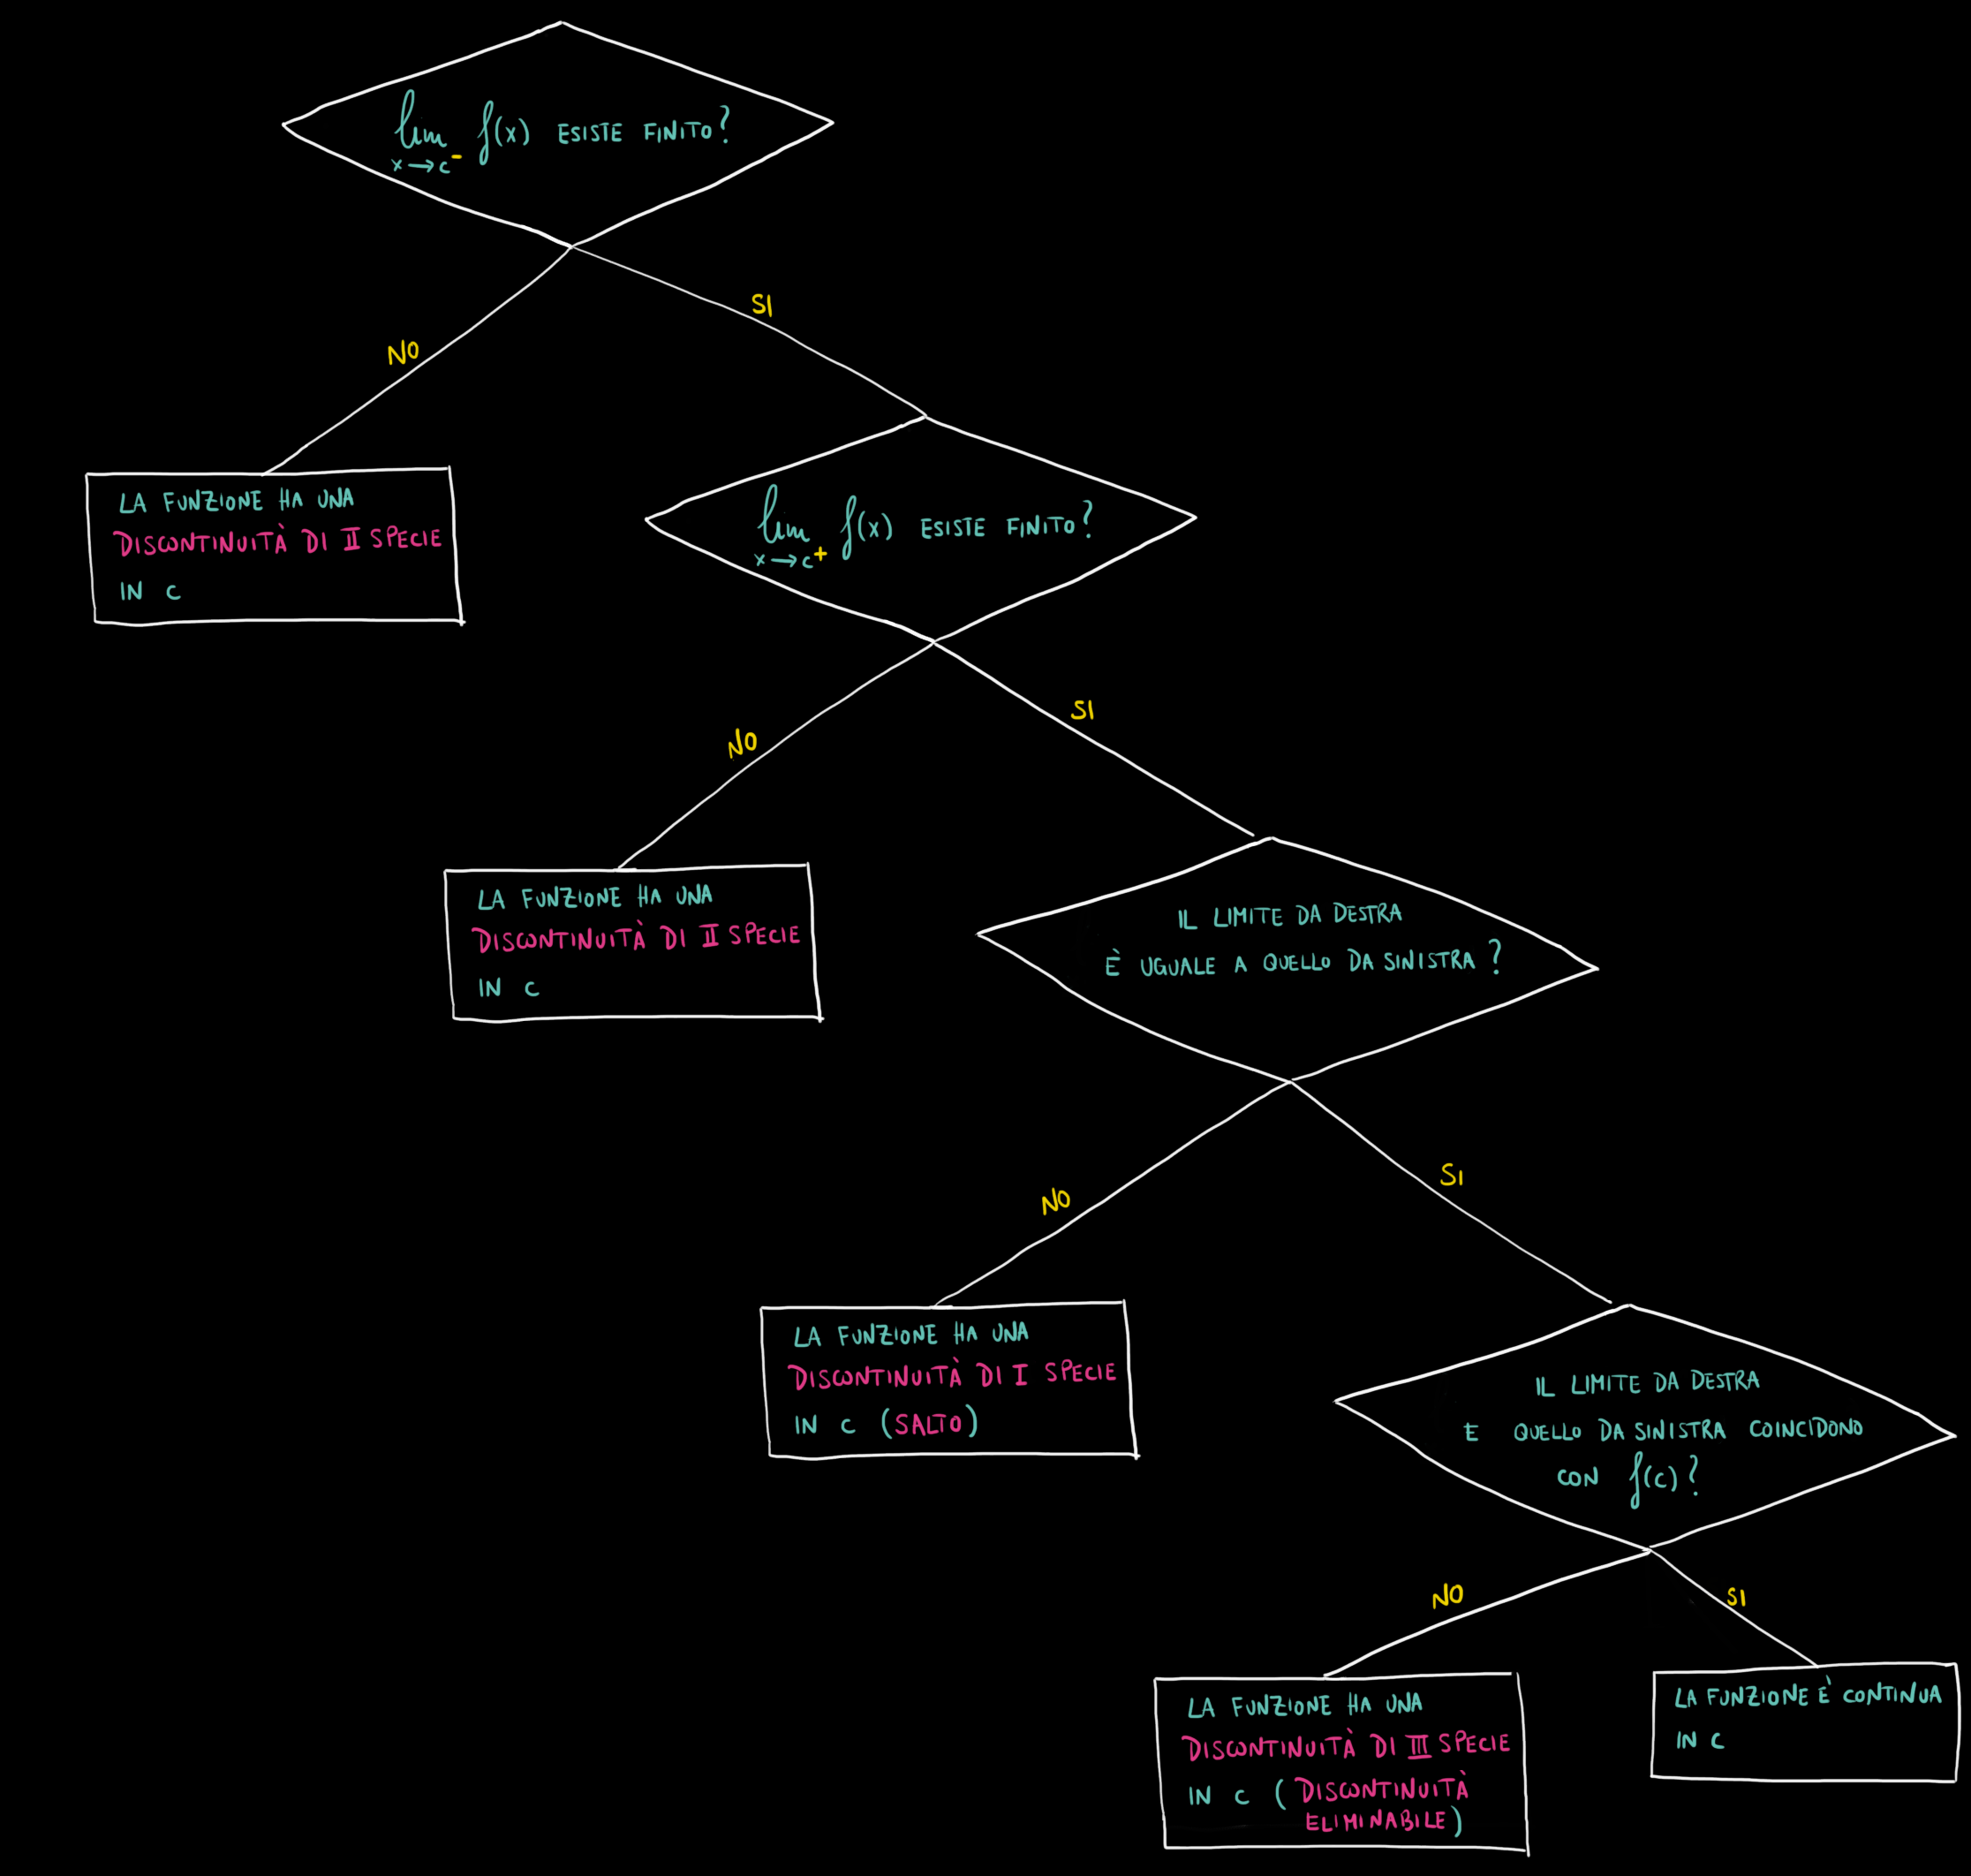 lim f(x) ESISTE FINITO?
x→c-
SI
NO
LA FUNZIONE HA UNA
DISCONTINUITÀ DI II SPECIE
IN C
lim f(x) ESISTE FINITO?
x→c+
SI
NO
LA FUNZIONE HA UNA
DISCONTINUITÀ DI II SPECIE
IN C
IL LIMITE DA DESTRA
È UGUALE A QUELLO DA SINISTRA?
SI
NO
LA FUNZIONE HA UNA
DISCONTINUITÀ DI I SPECIE
IN C (SALTO)
IL LIMITE DA DESTRA
E QUELLO DA SINISTRA COINCIDONO
CON f(c)?
NO
SI
LA FUNZIONE HA UNA
DISCONTINUITÀ DI III SPECIE
IN C (DISCONTINUITÀ
ELIMINABILE)
LA FUNZIONE È CONTINUA
IN C